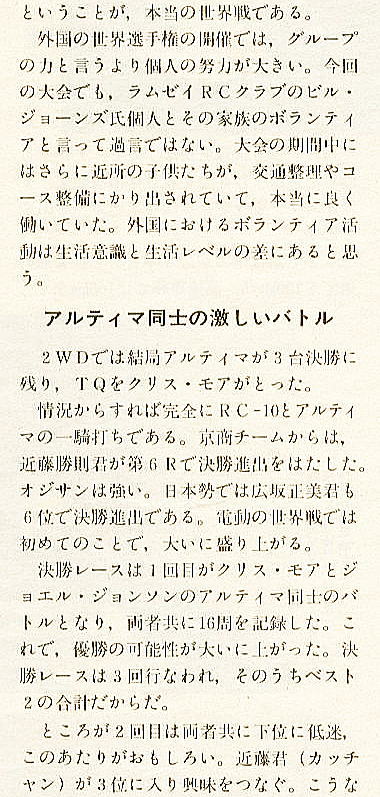 ということが，本当の世界戦である。
外国の世界選手権の開催では，グループ
の力と言うより個人の努力が大きい。今回
の大会でも，ラムゼイＲＣクラブのビル・
ジョーンズ氏個人とその家族のボランティ
アと言って過言ではない。大会の期間中に
はさらに近所の子供たちが，交通整理やコ
ース整備にかり出されていて，本当に良く
働いていた。外国におけるボランティア活
動は生活意識と生活レベルの差にあると思
う。
アルティマ同士の激しいバトル
２ＷＤでは結局アルティマが３台決勝に
残り，ＴＱをクリス・モアがとった。
情況からすれば完全にＲＣ-10とアルティ
マの一騎打ちである。京商チームからは，
近藤勝則君が第６Ｒで決勝進出をはたした。
オジサンは強い。日本勢では広坂正美君も
６位で決勝進出である。電動の世界戦では
初めてのことで，大いに盛り上がる。
決勝レースは１回目がクリス・モアとジ
ョエル・ジョンソンのアルティマ同士のバ
トルとなり，両者共に16周を記録した。こ
れで，優勝の可能性が大いに上がった。決
勝レースは３回行なわれ，そのうちベスト
２の合計だからだ。
ところが２回目は両者共に下位に低迷，
このあたりがおもしろい。近藤君（カッチ
ャン）が３位に入り興味をつなぐ。こうな